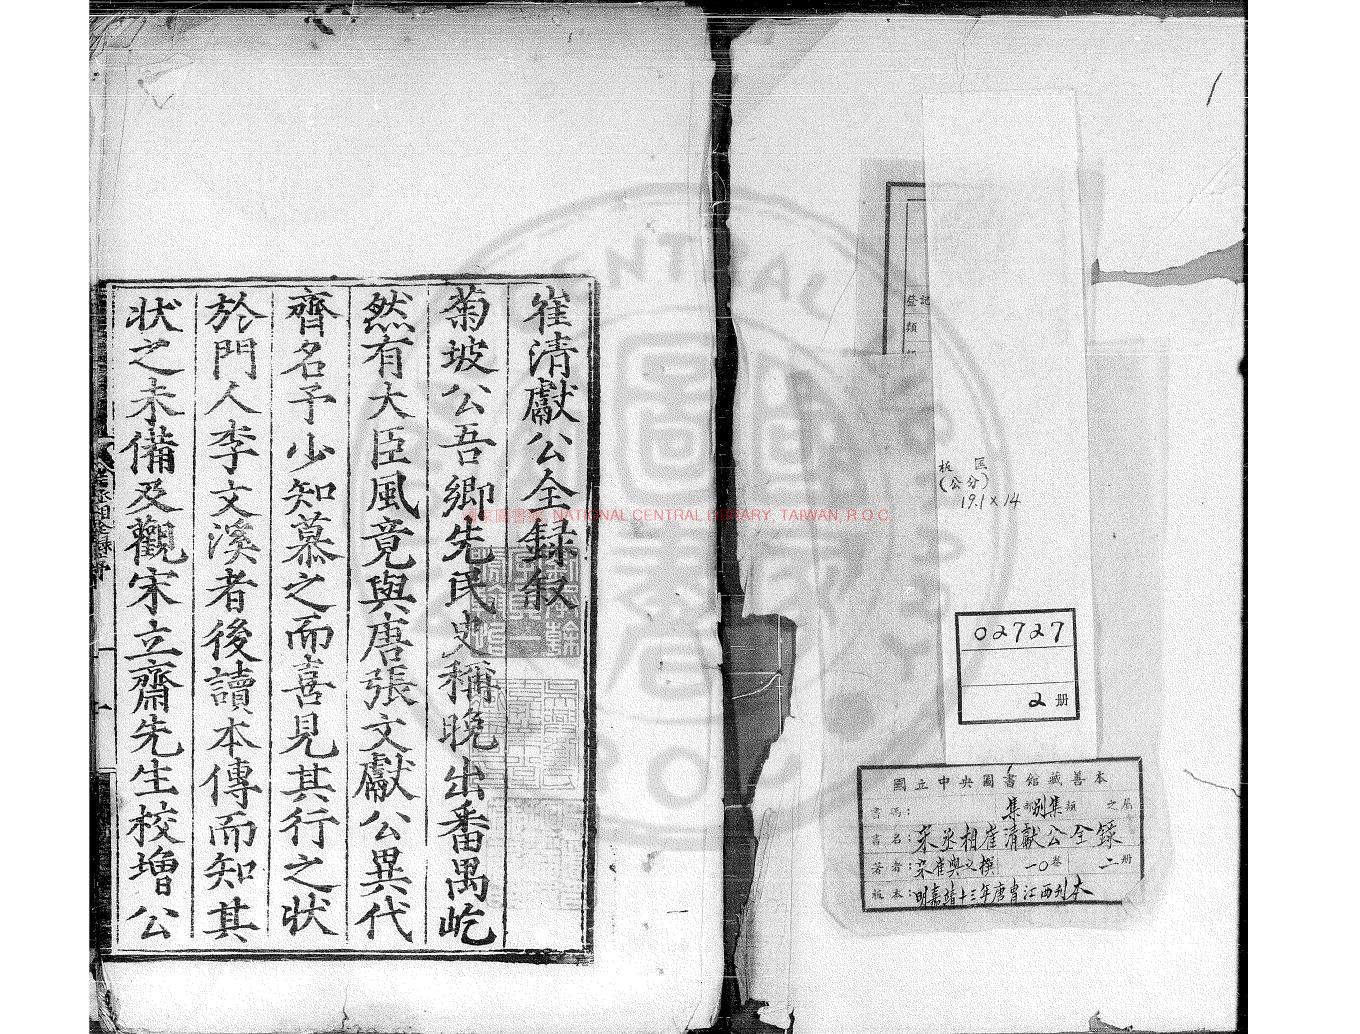 崔清獻公全録叙
菊坡公吾鄉先民史稱晚出番禺屹
然有大臣風竟與唐張文獻公異代
齊名予少知慕之而喜見其行之狀
於門人李文溪者後讀本傳而知其
狀之未備及觀宋立齋先生校增公
登記
類
板匡
(公分)
19.1×14
02727
2 册
國立中央圖書館藏善本
書碼: 集部別集類 之屬
書名:宋丞相崔清獻公全錄
著者:宋崔與之撰 一〇卷 二册
版本:明嘉靖十三年唐胄江西刊本
國家圖書館 NATIONAL CENTRAL LIBRARY, TAIWAN, R.O.C